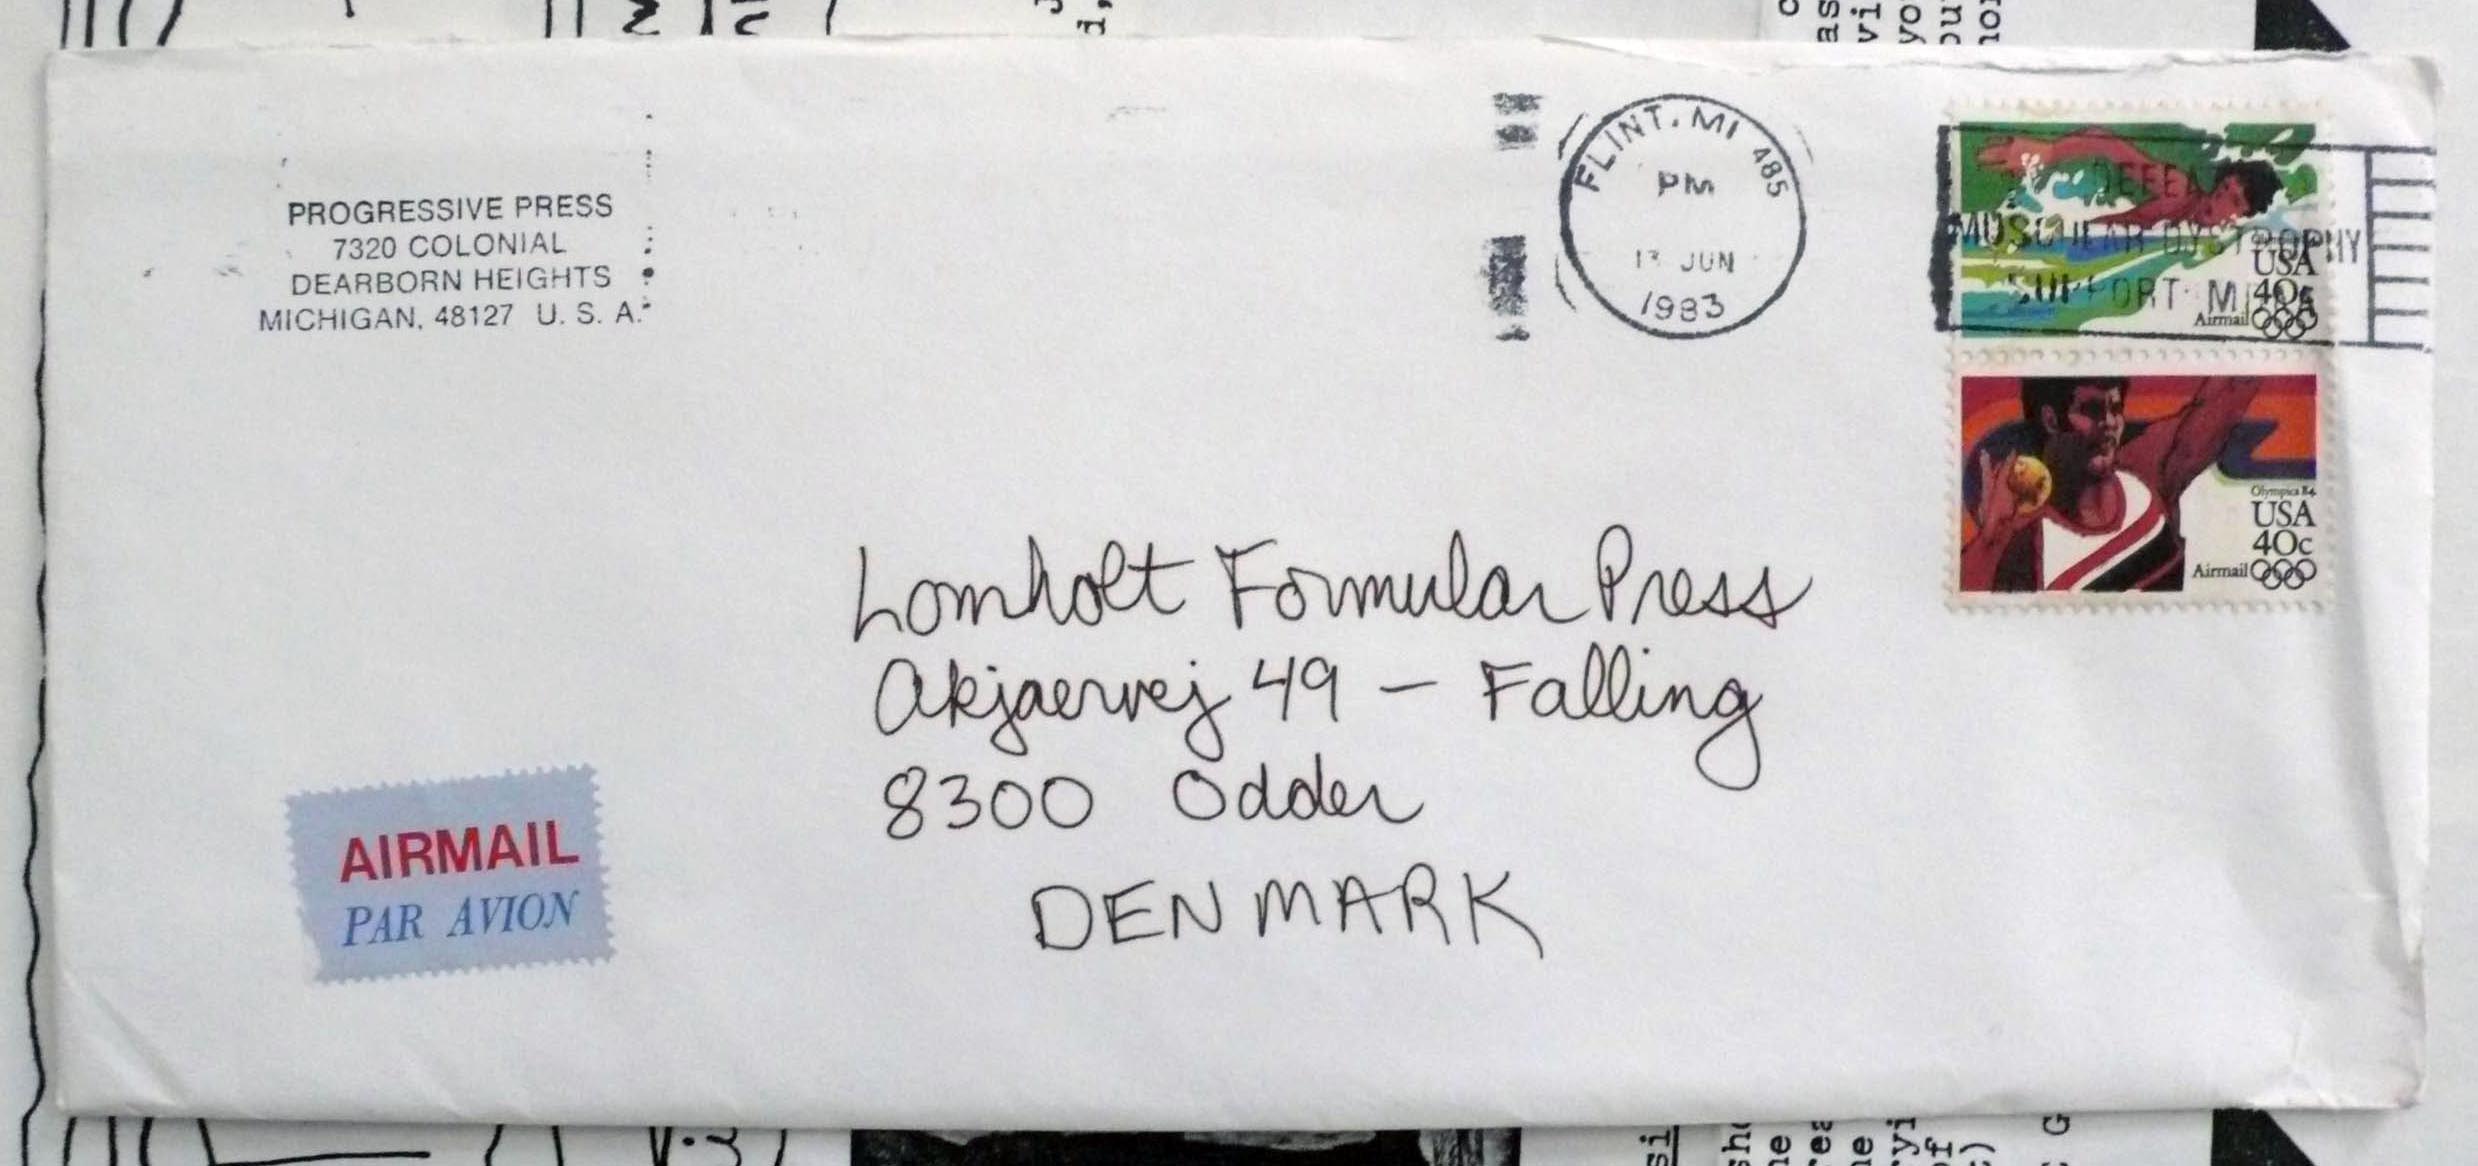 PROGRESSIVE PRESS
7320 COLONIAL
DEARBORN HEIGHTS
MICHIGAN, 48127 U. S. A.
FLINT, MI 485
PM
JUN
1983
MUSCULAR DYSTROPHY
SUPPORT
USA
40c
Airmail
Olympics 84
USA
40c
Airmail
Lomholt Formular Press
Akjaervej 49 — Falling
8300 Odder
DENMARK
AIRMAIL
PAR AVION